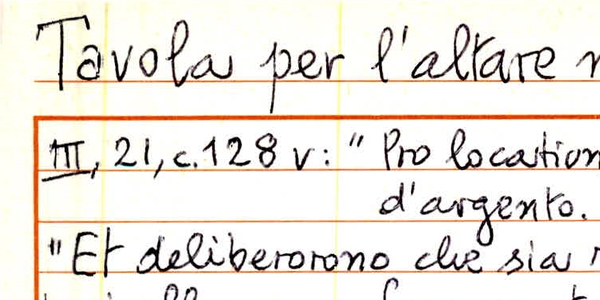 Tavola per l'altare
III, 21, c. 128 v: " Pro location
d'argento.
"Et deliberorono che sia